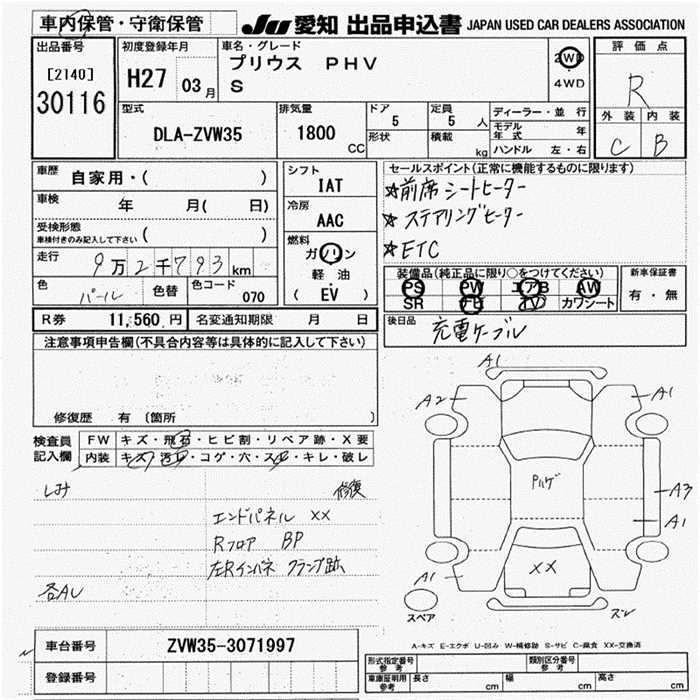 車内保管・守衛保管 JU 愛知 出品申込書 JAPAN USED CAR DEALERS ASSOCIATION
出品番号
[2140]
30116
初度登録年月
H27 03月
車名・グレード
プリウス PHV
S
2WD
4WD
評価点
R
外装 内装
C B
型式
DLA-ZVW35
排気量
1800
CC
ドア
5
形状
定員
5 人
積載
kg
ディーラー・並行
モデル年式 年
ハンドル 左・右
車歴 自家用・( )
車検 年 月( 日)
受検形態
車検付きのみ記入して下さい ( )
走行 9万2千793km
色 パール 色替 色コード 070
シフト
IAT
冷房
AAC
燃料
ガソリン
軽油
( EV )
セールスポイント(正常に機能するものに限ります)
★前席シートヒーター
★ステアリングヒーター
★ETC
装備品(純正品に限り○をつけてください)
PS PW エアB AW
SR ナビ TV カワシート
新車保証書
有・無
R券 11,560円 名変通知期限 月 日
後日品 充電ケーブル
注意事項申告欄(不具合内容等は具体的に記入して下さい)
修復歴 有 〔箇所
検査員記入欄
FW キズ・飛石・ヒビ割・リペア跡・X要
内装 キズ・汚レ・コゲ・穴・スレ・キレ・破レ
しみ 修復
エンドパネル XX
Rフロア BP
左Rインパネ クランプ跡
各AU
A1
A2
A1
Pハゲ
A3
A1
A1
XX
スペア
ズレ
A-キズ E-エクボ U-凹み W-補修跡 S-サビ C-腐食 XX-交換済
車台番号 ZVW35-3071997
登録番号
形式指定番号
参考
類別区分番号
参考
車庫証明用
参考
長さ cm 幅 cm 高さ cm